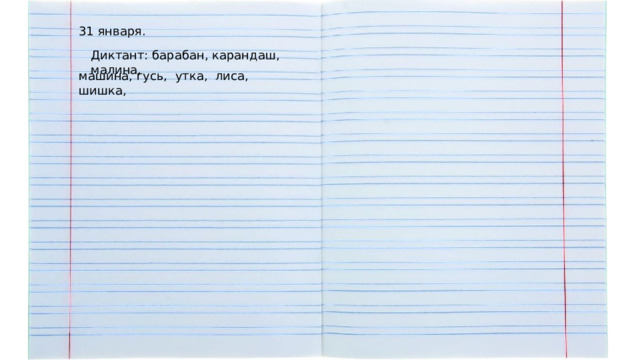 31 января.
Диктант: барабан, карандаш,
малина,
машина, гусь, утка, лиса,
шишка,